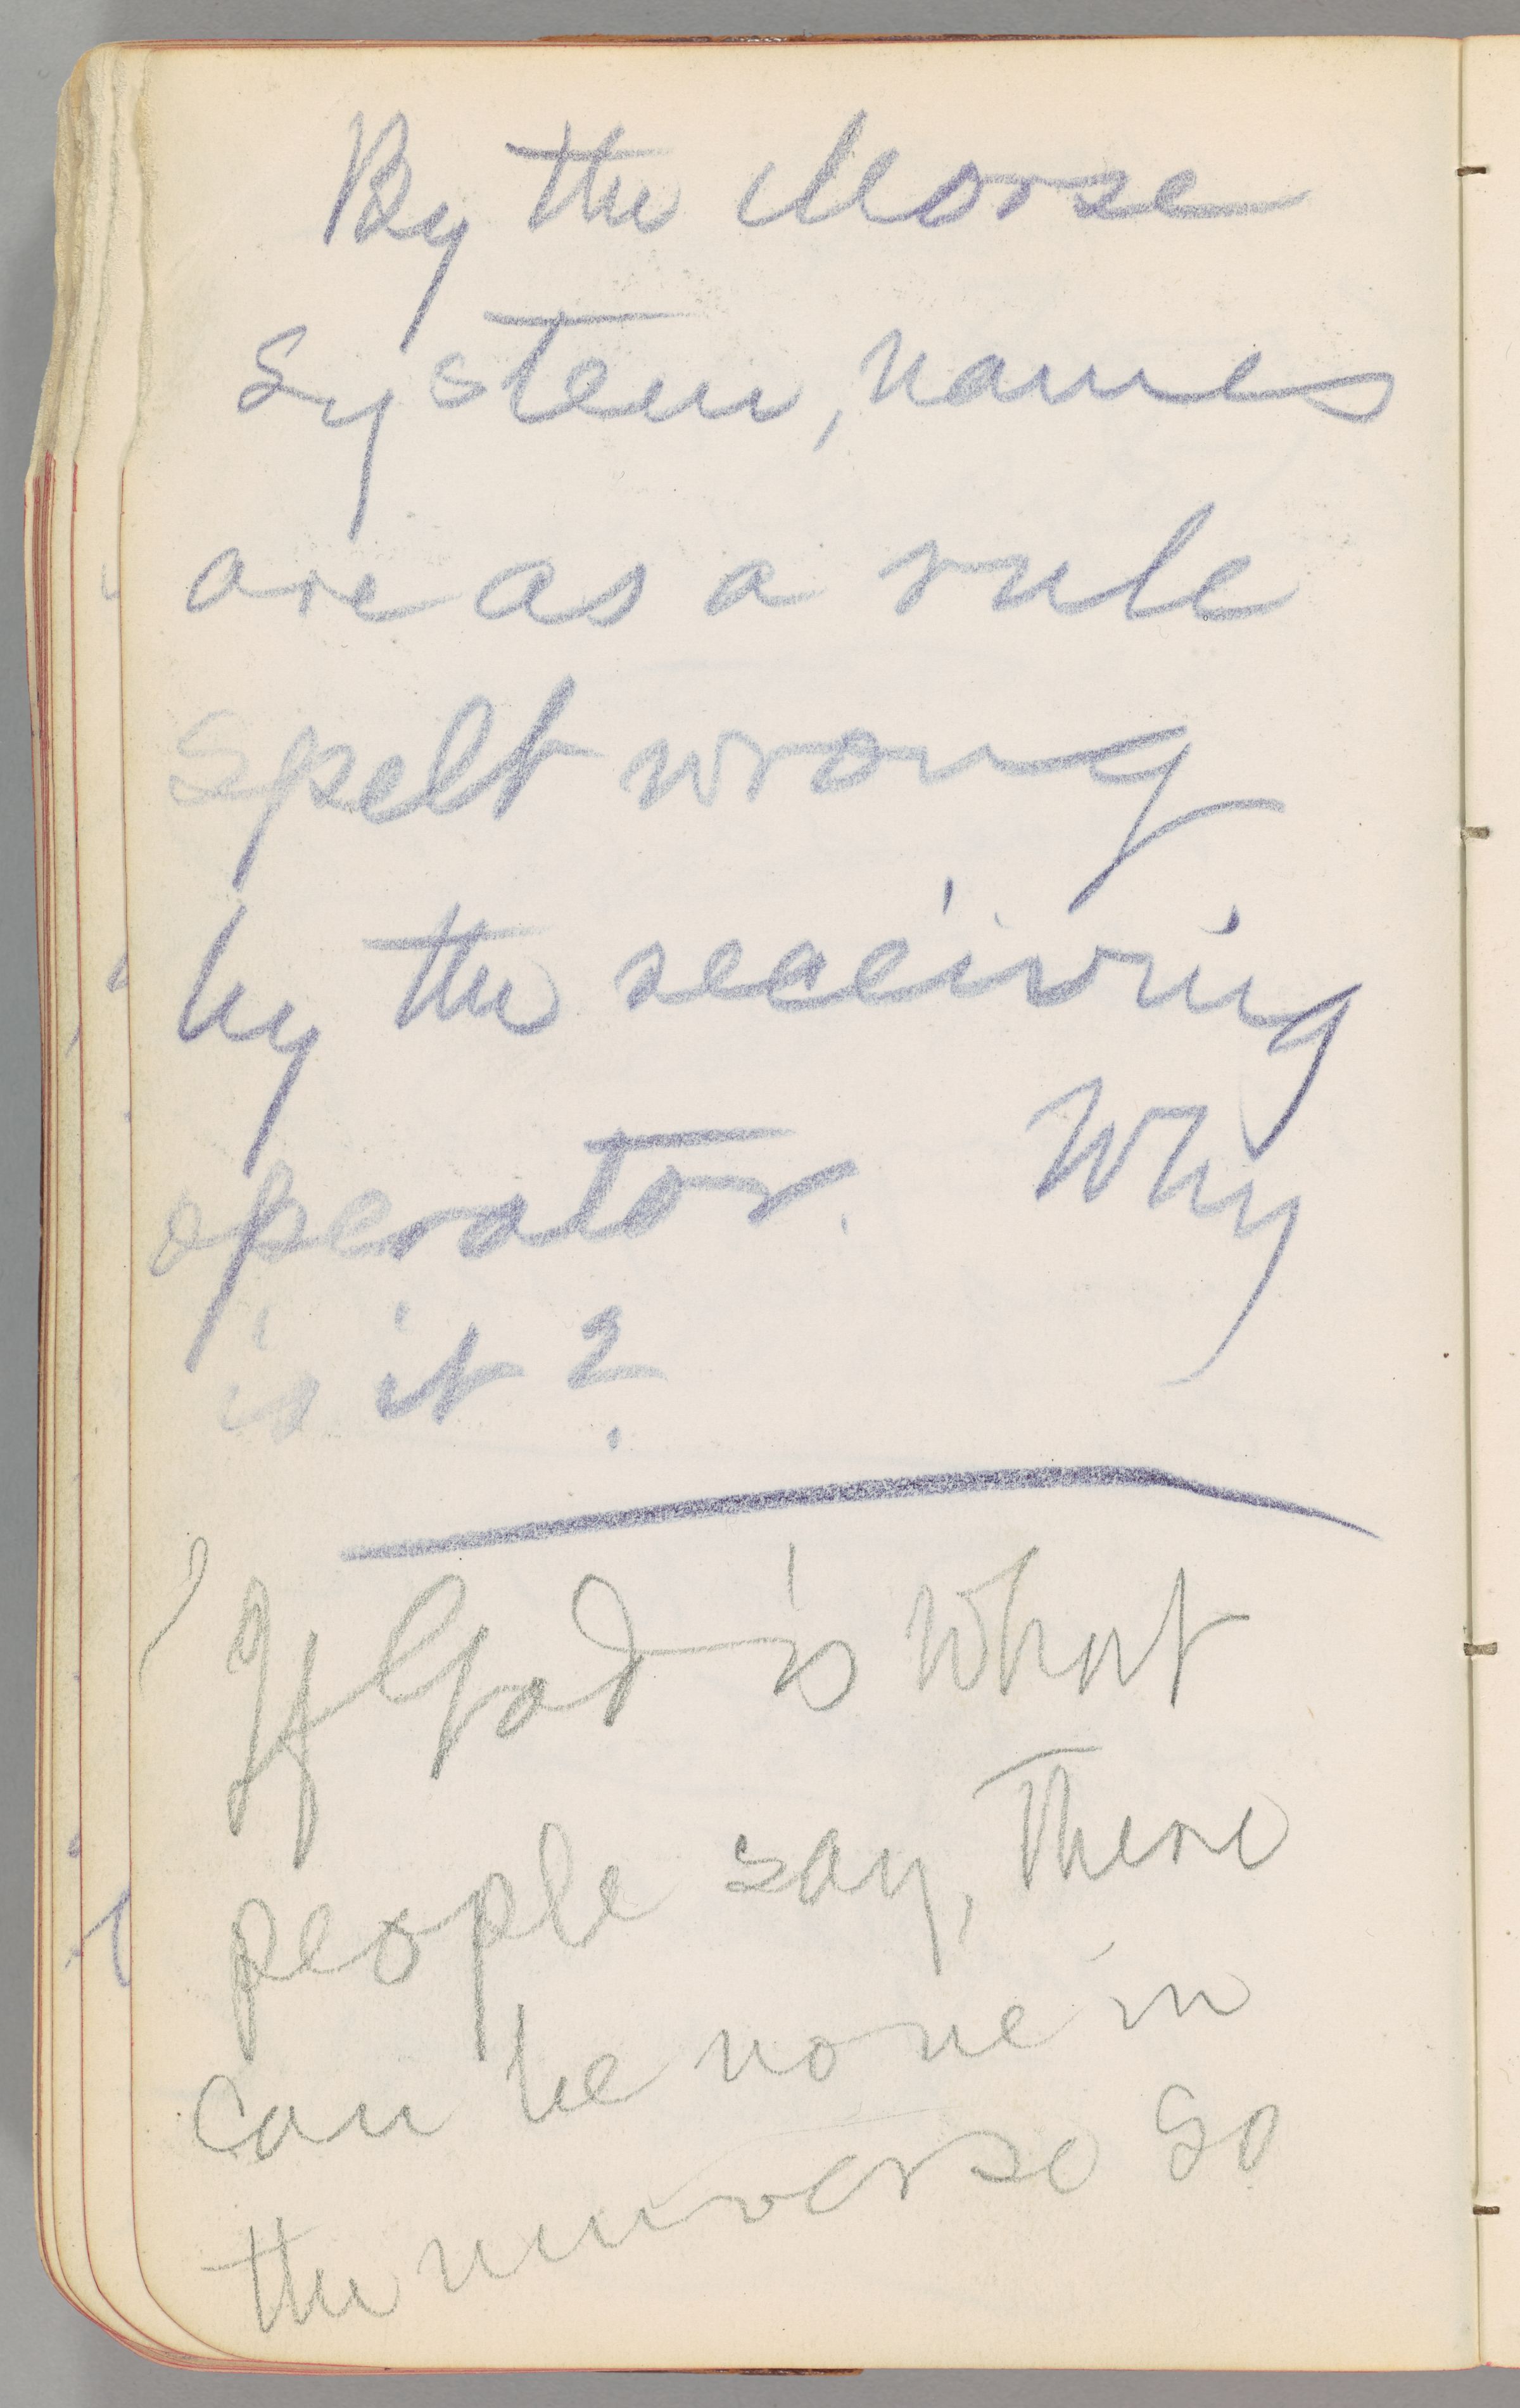 By the Morse
system, names
are as a rule
spelt wrong
by the receiving
operator. Why
is it?
If God is what
people say, there
can be none in
the universe so